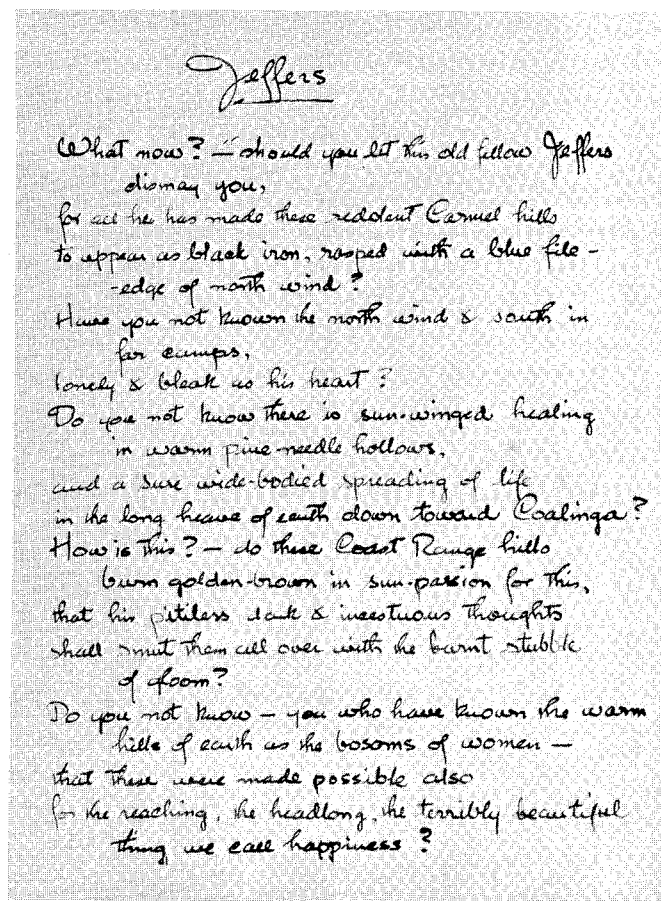 Jeffers
What now? — should you let this old fellow Jeffers
dismay you,
for all he has made these redolent Carmel hills
to appear as black iron, rasped with a blue file-
-edge of north wind?
Have you not known the north wind & south in
far camps,
lonely & bleak as his heart?
Do you not know there is sun-winged healing
in warm pine-needle hollows,
and a sure wide-bodied spreading of life
in the long heave of earth down toward Coalinga?
How is this? — do these Coast Range hills
burn golden-brown in sun-passion for this,
that his pitiless dark & incestuous thoughts
shall smut them all over with the burnt stubble
of doom?
Do you not know — you who have known the warm
hills of earth as the bosoms of women —
that these were made possible also
for the reaching, the headlong, the terribly beautiful
thing we call happiness?